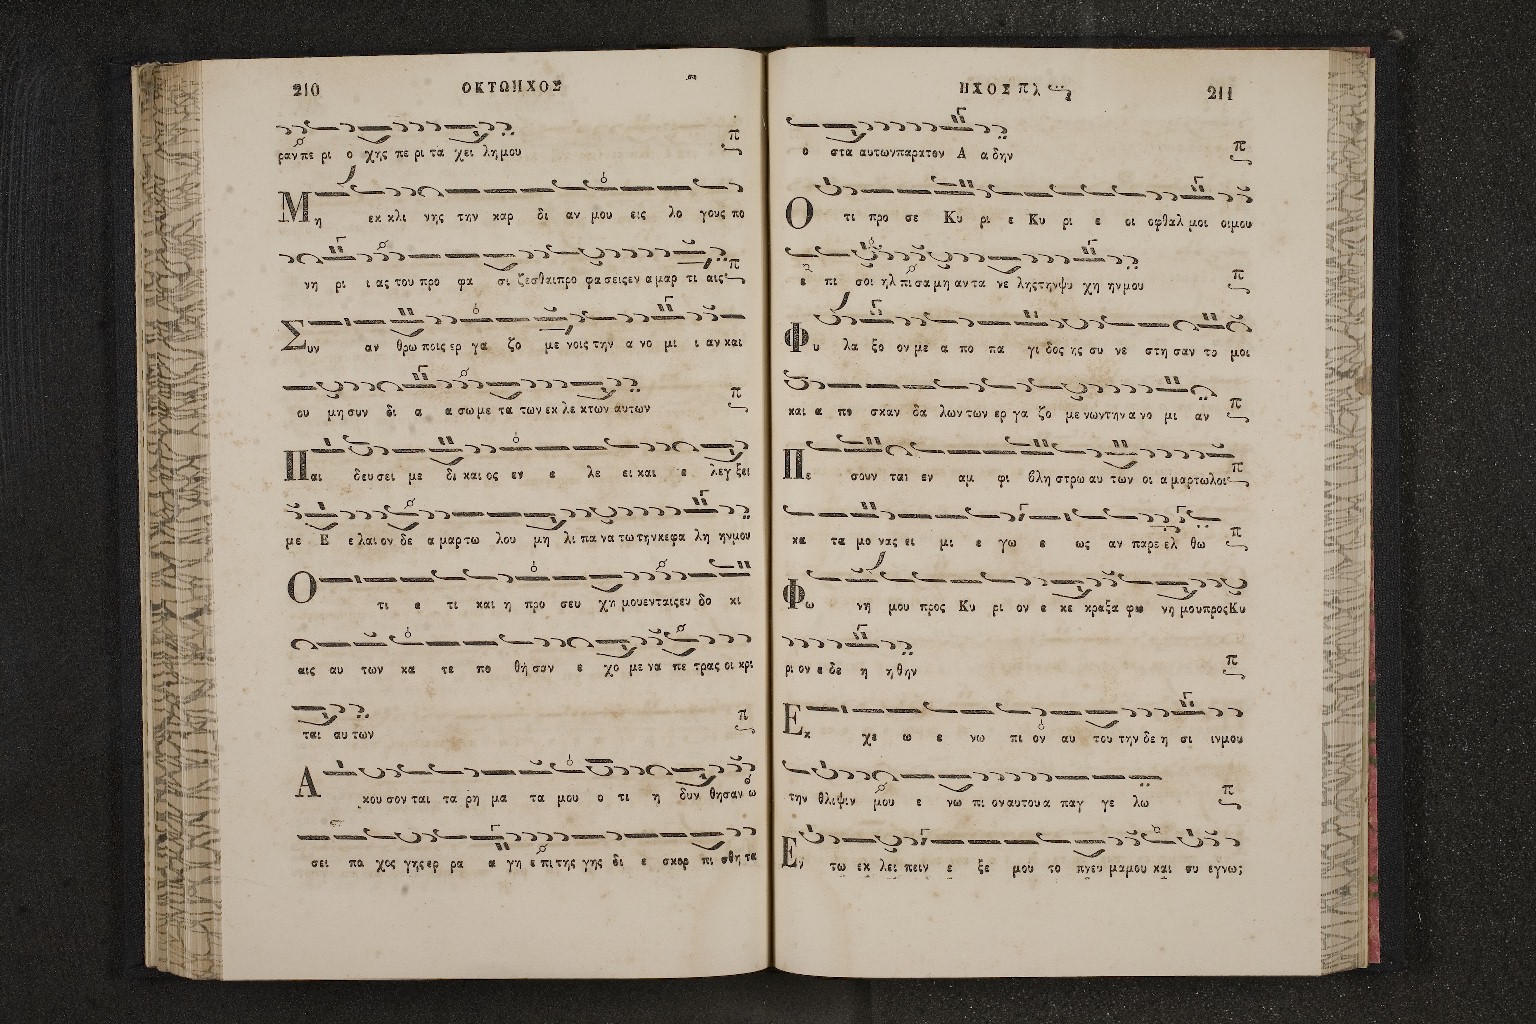 210 ΟΚΤΩΗΧΟΣ
ραν πε ρι ο χης πε ρι τα χει λη μου
Μη εκ κλι νης την καρ δι αν μου εις λο γους πο
νη ρι ι ας του προ φα σι ζεσθαι προ φα σεις εν α μαρ τι αις
Συν αν θρω ποις ερ γα ζο με νοις την α νο μι ι αν και
ου μη συν δι α α σω με τα των εκ λε κτων αυτων
Παι δευ σει με δι και ος εν ε λε ει και ε λεγ ξει
με Ε ε λαι ον δε α μαρ τω λου μη λι πα να τω την κεφα λη ην μου
Ο τι ε τι και η προ σευ χη μου εν ταις ευ δο κι
αις αυ των κα τε πο θη σαν ε χο με να πε τρας οι κρι
ται αυ των
Α κου σον ται τα ρη μα τα μου ο τι η δυν θησαν ω
σει πα χος γης ερ ρα α γη ε πι της γης δι ε σκορ πι σθη τα
ΗΧΟΣ πλ 211
ο στα αυτων παρα τον Α α δην
Ο τι προ σε Κυ ρι ε Κυ ρι ε οι οφθαλ μοι οι μου
ε πι σοι ηλ πι σα μη αν τα νε λης την ψυ χη ην μου
Φυ λα ξο ον με α πο πα γι δος ης συ νε στη σαν το μοι
και α πο σκαν δα λων των ερ γα ζο με νων την α νο μι αν
Πε σουν ται εν αμ φι βλη στρω αυ των οι α μαρτωλοι
κα τα μο νας ει μι ε γω ε ως αν παρε ελ θω
Φω νη μου προς Κυ ρι ον ε κε κραξα φω νη μου προς Κυ
ρι ον ε δε η η θην
Εκ χε ω ε νω πι ον αυ του την δε η σι ιν μου
την θλιψιν μου ε νω πι ον αυτου α παγ γε λω
Εν τω εκ λει πειν ε ξε μου το πνευ μα μου και συ εγνω;